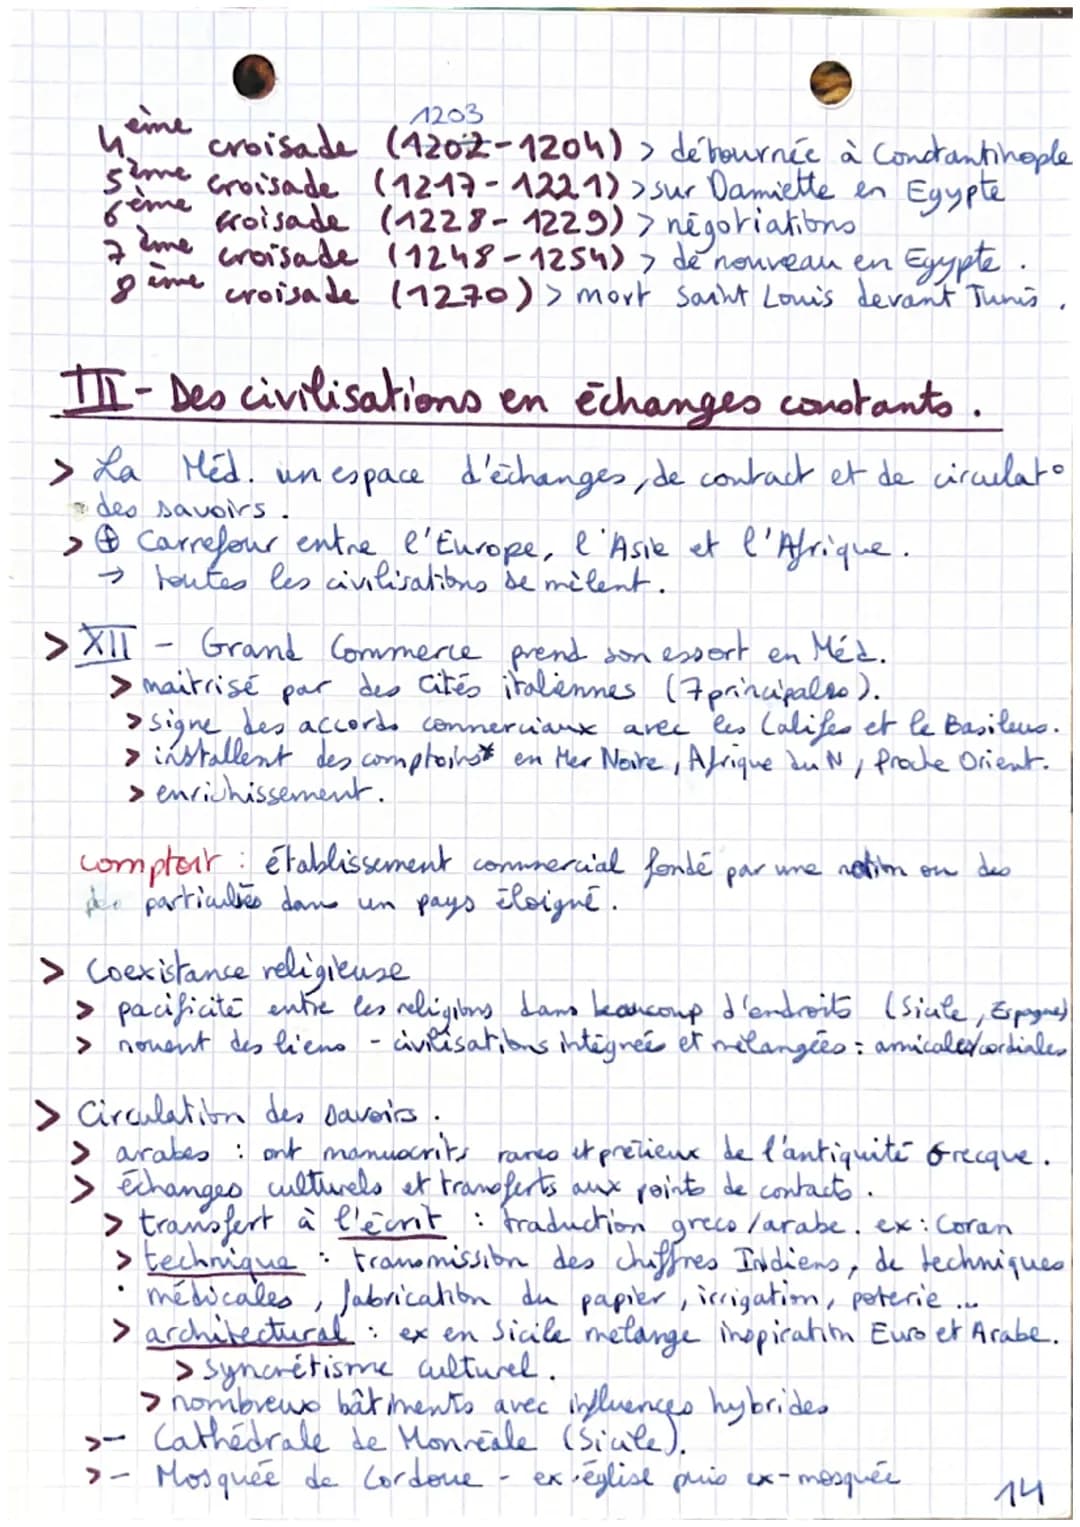 1203
4ème croisade (1202-1204) > détournée à Constantinople
5ème croisade (1217-1221) > sur Damiette en Egypte
6ème croisade (1228-1229) > négotiations
7ème croisade (1248-1254) > de nouveau en Egypte.
8ème croisade (1270) > mort Saint Louis devant Tunis.
III - Des civilisations en échanges constants.
> La Méd. un espace d'échanges, de contact et de circulat°
des savoirs.
> ⊕ Carrefour entre l'Europe, l'Asie et l'Afrique.
→ toutes les civilisations se mêlent.
> XII - Grand Commerce prend son essort en Méd.
> maitrisé par des Cités italiennes (7 principales).
> signe des accords commerciaux avec les Califes et le Basileus.
> installent des comptoirs* en Mer Noire, Afrique du N, Proche Orient.
> enrichissement.
comptoir : établissement commercial fondé par une nation ou des
des particuliés dans un pays éloigné.
> Coexistance religieuse
> pacificité entre les religions dans beaucoup d'endroits (Sicile, Espagne)
> nouent des liens - civilisations intégrées et mélangées : amicales/cordiales
> Circulation des savoirs.
> arabes : ont manuscrits rares et prétieux de l'antiquité Grecque.
> échanges culturels et transferts aux points de contacts.
> transfert à l'écrit : traduction greco/arabe. ex : Coran
> technique : transmission des chiffres Indiens, de techniques
médicales, fabrication du papier, irrigation, poterie...
> architectural : ex en Sicile mélange inspiration Euro et Arabe.
> syncrétisme culturel.
> nombreux bâtiments avec influences hybrides
>- Cathédrale de Monréale (Sicile).
>- Mosquée de Cordoue - ex-église puis ex-mosquée
14